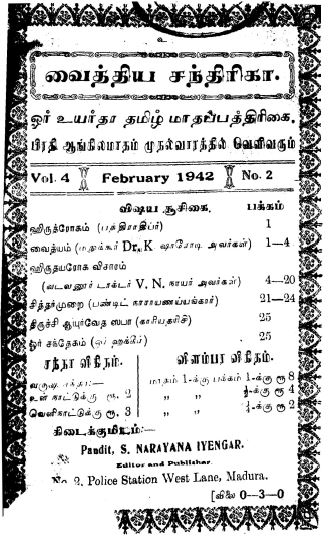 உ
வைத்திய சந்திரிகா.
ஓர் உயர்தர தமிழ் மாதப்பத்திரிகை,
பிரதி ஆங்கிலமாதம் முதல்வாரத்தில் வெளிவரும்
Vol. 4 February 1942 No. 2
விஷய சூசிகை. பக்கம்
ஹிருத்ரோகம் (பத்திராதிபர்) 1
வைத்யம் (டாக்டர் Dr. K. அவர்கள்) 1—4
ஹிருதயரோக விசாரம்
(வடவனூர் டாக்டர் V. N. நாயர் அவர்கள்) 4—20
சித்தர்முறை (பண்டிட் நாராயணய்யங்கார்) 21—24
திருச்சி ஆயுர்வேத ஸபா (காரியதரிசி) 25
ஓர் சந்தேகம் (ஓர் ஹக்கீம்) 25
சந்தா விகிதம். விளம்பர விகிதம்.
வருஷ சந்தா:— மாதம் 1-க்கு பக்கம் 1-க்கு ரூ 8
உள் நாட்டுக்கு ரூ. 2 „ „ ½-க்கு ரூ 4
வெளிநாட்டுக்கு ரூ. 3 „ „ ¼-க்கு ரூ 2
கிடைக்குமிடம்:—
Pandit, S. NARAYANA IYENGAR.
Editor and Publisher.
No. 2, Police Station West Lane, Madura.
[விலை 0—3—0